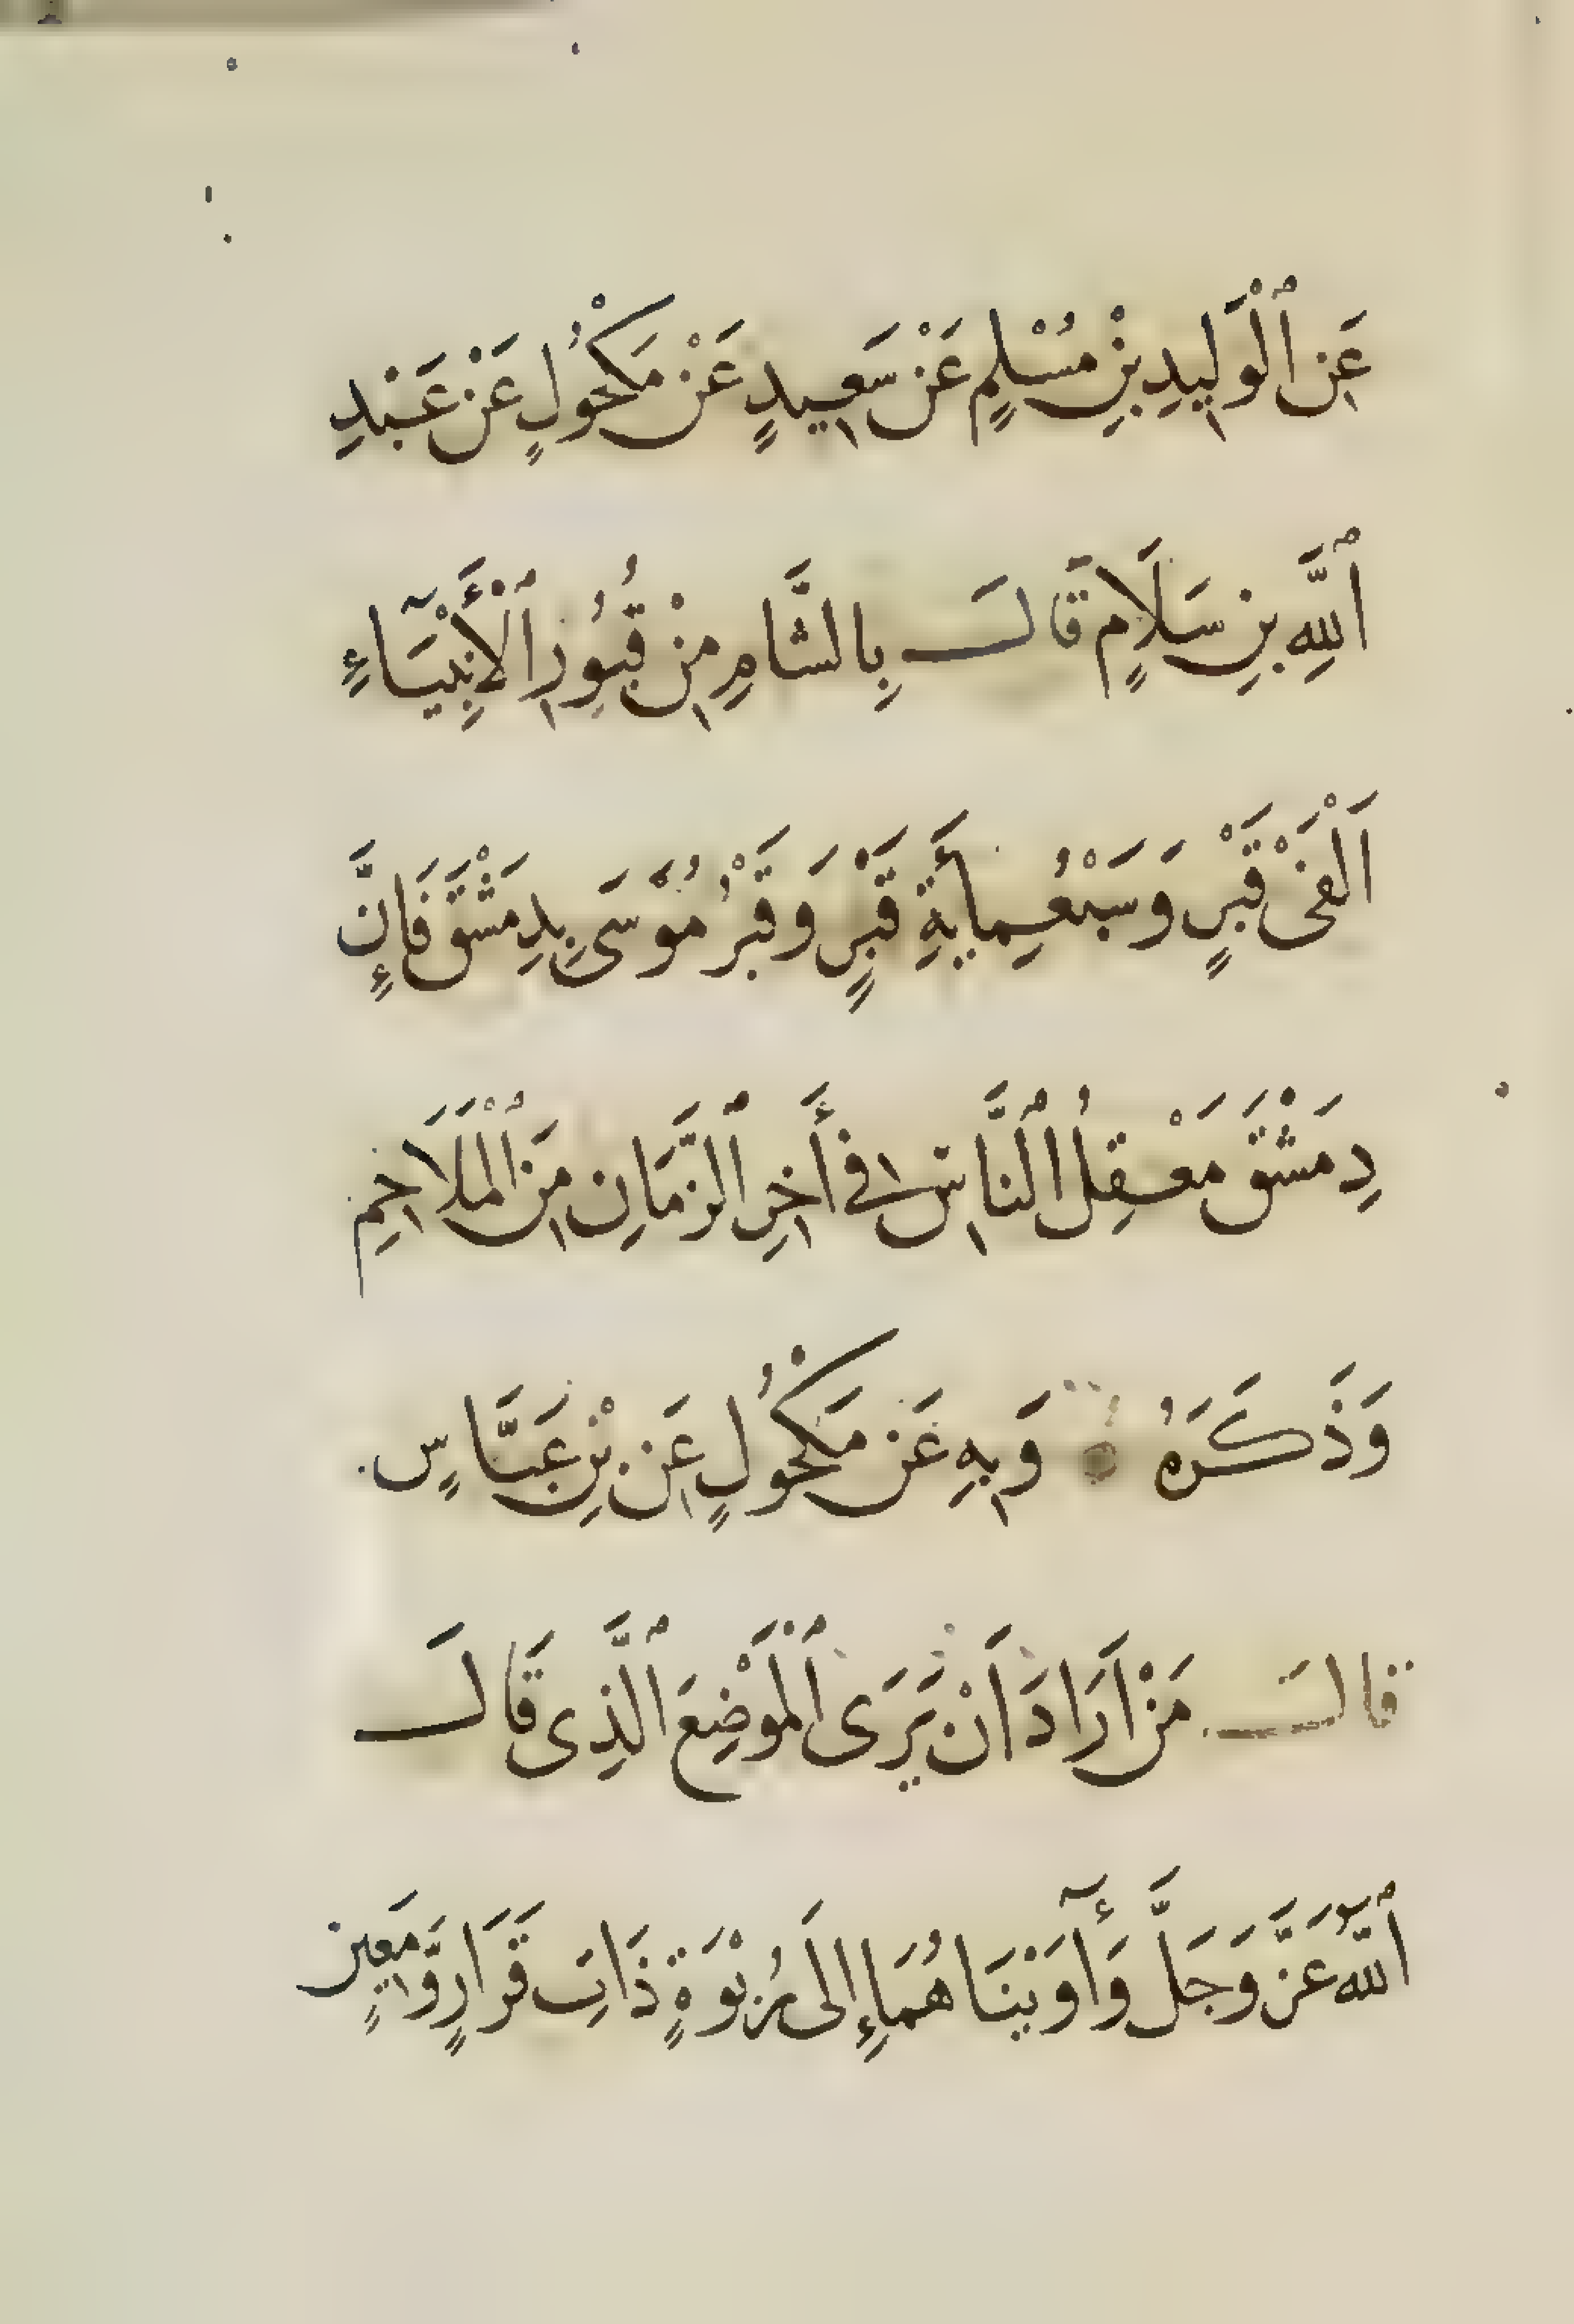 عَنِ ٱلْوَلِيدِ بْنِ مُسْلِمٍ عَنْ سَعِيدٍ عَنْ مَكْحُولٍ عَنْ عَبْدِ
ٱللَّهِ بْنِ سَلَامٍ قَالَ بِالشَّامِ مِنْ قُبُورِ ٱلْأَنْبِيَآءِ
اَلْفَىْ قَبْرٍ وَسَبْعُمِايَةِ قَبْرٍ وَقَبْرُ مُوسَى بِدِمَشْقَ فَإِنَّ
دِمَشْقَ مَعْقِلُ ٱلنَّاسِ فِي أَخِرِ ٱلزَّمَانِ مِنَ ٱلْمَلَاحِمِ
وَذَكَرَهُ وَبِهِ عَنْ مَكْحُولٍ عَنِ بْنِ عَبَّاسٍ
قَالَ مَنْ اَرَادَ اَنْ يَرَى ٱلْمَوْضِعَ ٱلَّذِى قَالَ
ٱللَّهُ عَزَّ وَجَلَّ وَأٓوَيْنَاهُمَا إِلَى رُبْوَةٍ ذَاتِ قَرَارٍ وَّمَعِينٍ